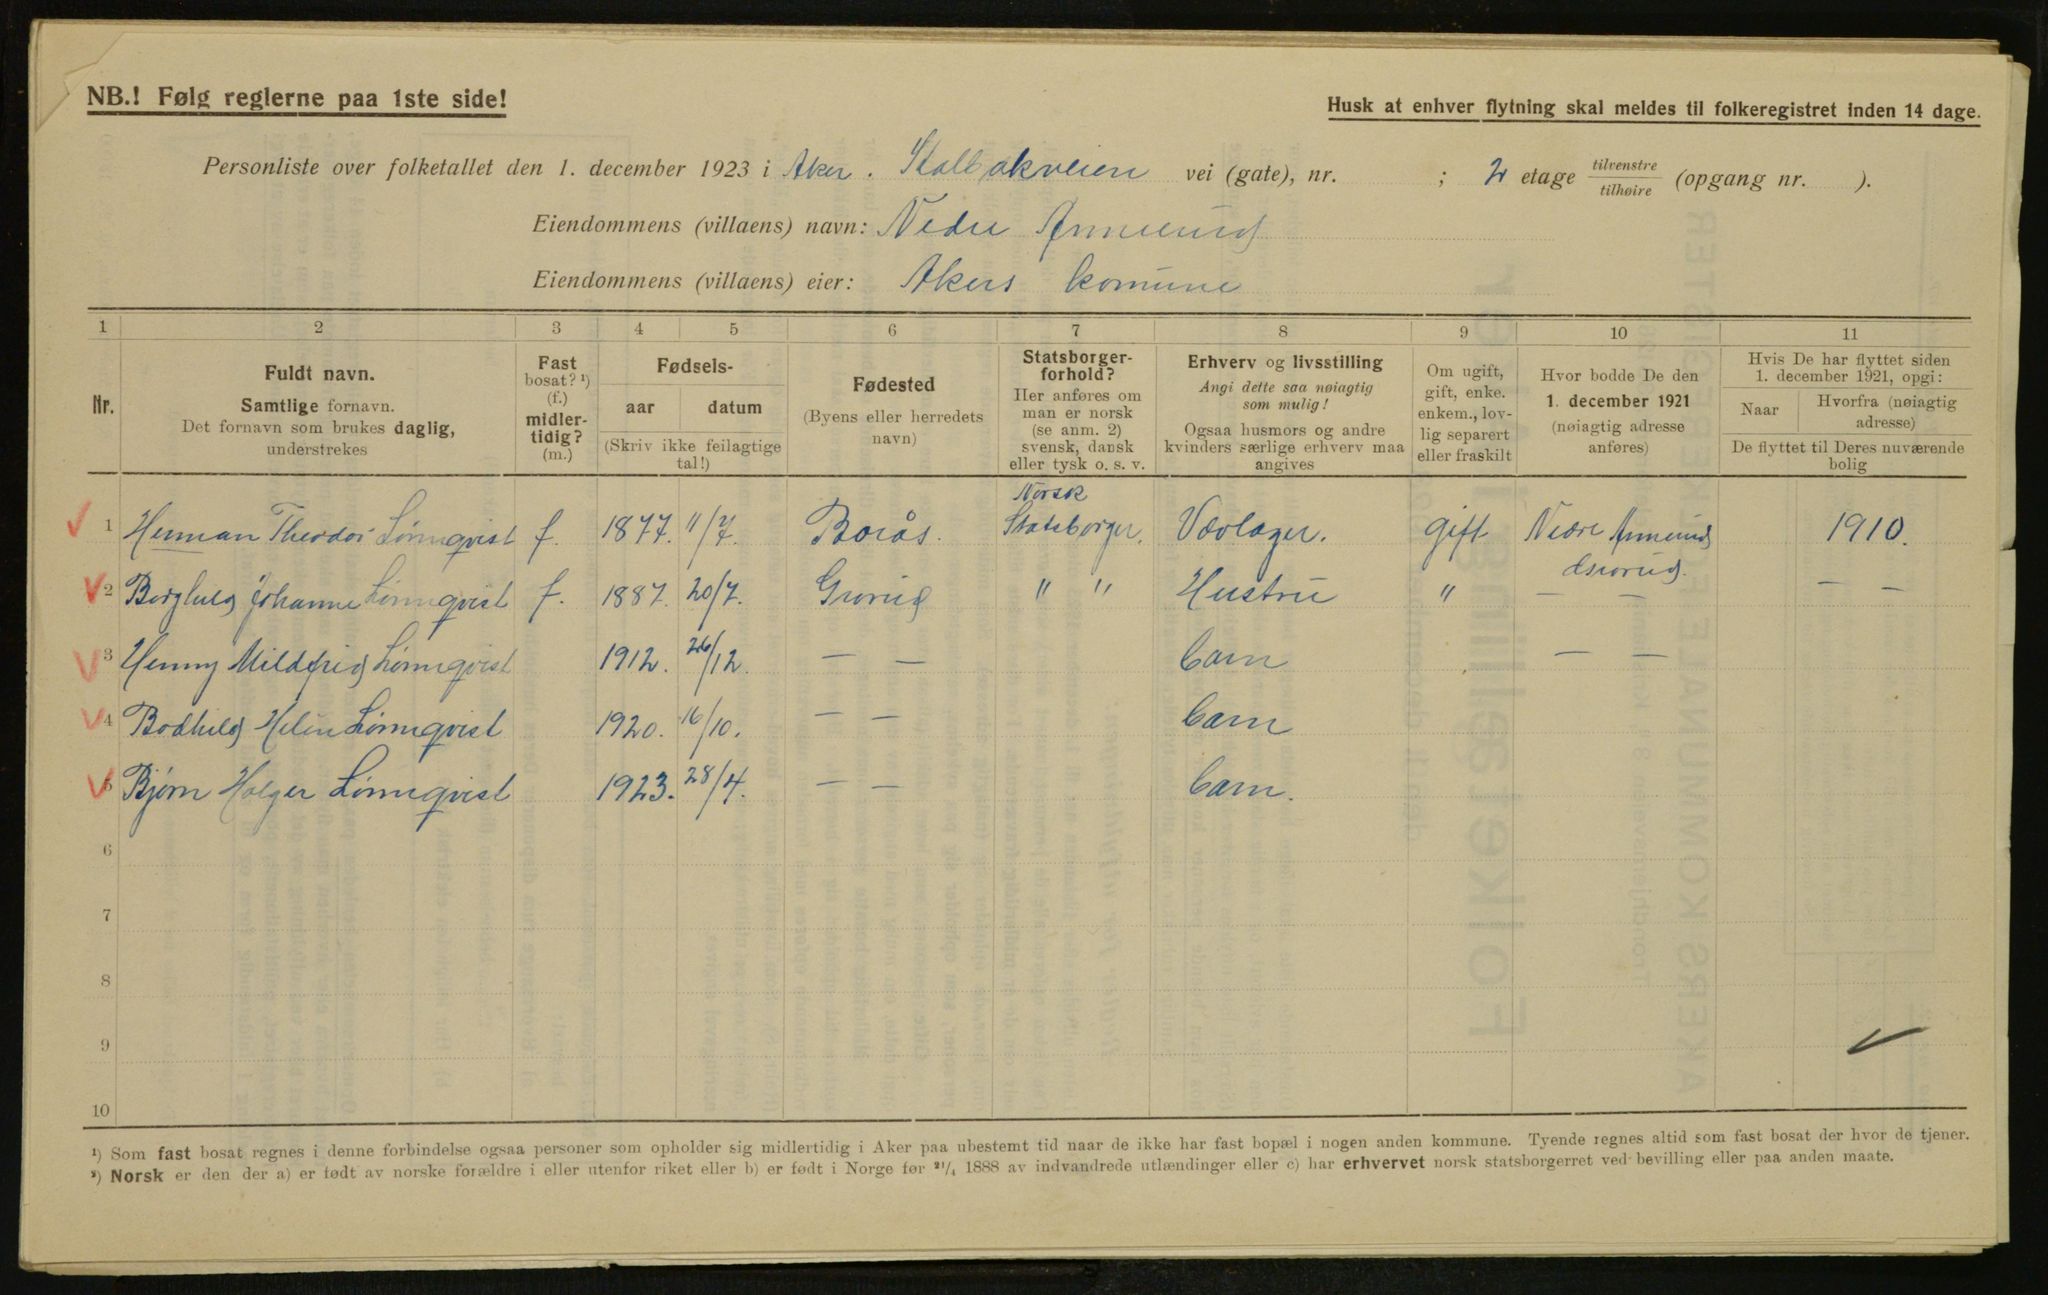 NB.! Følg reglerne paa 1ste side!
Husk at enhver flytning skal meldes til folkeregistret inden 14 dage.
Personliste over folketallet den 1. december 1923 i Aker. Stalbakveien vei (gate), nr. ; 2 etage tilvenstre/tilhøire (opgang nr. ).
Eiendommens (villaens) navn: Nedre Ammerud
Eiendommens (villaens) eier: Akers komune
1 2 3 4 5 6 7 8 9 10 11
Nr.
Fuldt navn.
Samtlige fornavn.
Det fornavn som brukes daglig,
understrekes
Fast
bosat? ¹)
(f.)
midler-
tidig?
(m.)
Fødsels-
aar datum
(Skriv ikke feilagtige
tal!)
Fødested
(Byens eller herredets
navn)
Statsborger-
forhold?
Her anføres om
man er norsk
(se anm. 2)
svensk, dansk
eller tysk o. s. v.
Erhverv og livsstilling
Angi dette saa nøiagtig
som mulig!
Ogsaa husmors og andre
kvinders særlige erhverv maa
angives
Om ugift,
gift, enke.
enkem., lov-
lig separert
eller fraskilt
Hvor bodde De den
1. december 1921
(nøiagtig adresse
anføres)
Hvis De har flyttet siden
1. december 1921, opgi:
Naar
Hvorfra (nøiagtig
adresse)
De flyttet til Deres nuværende
bolig
1 Herman Theodor Lönnqvist f. 1877. 11/7. Borås. Norsk Statsborger. Vævlager. gift Nedre Ammerud Grorud. 1910.
2 Borghild Johanne Lönnqvist f. 1887. 20/7. Grorud " " Hustru " — — — —
3 Henny Mildfrid Lönnqvist 1912. 26/12. — — barn — —
4 Bodhild Helen Lönnqvist 1920. 16/10. — — barn
5 Bjørn Holger Lönnqvist 1923. 28/4. — — barn.
6
7
8
9
10
¹) Som fast bosat regnes i denne forbindelse ogsaa personer som opholder sig midlertidig i Aker paa ubestemt tid naar de ikke har fast bopæl i nogen anden kommune. Tyende regnes altid som fast bosat der hvor de tjener.
²) Norsk er den der a) er født av norske forældre i eller utenfor riket eller b) er født i Norge før ²¹/₄ 1888 av indvandrede utlændinger eller c) har erhvervet norsk statsborgerret ved bevilling eller paa anden maate.